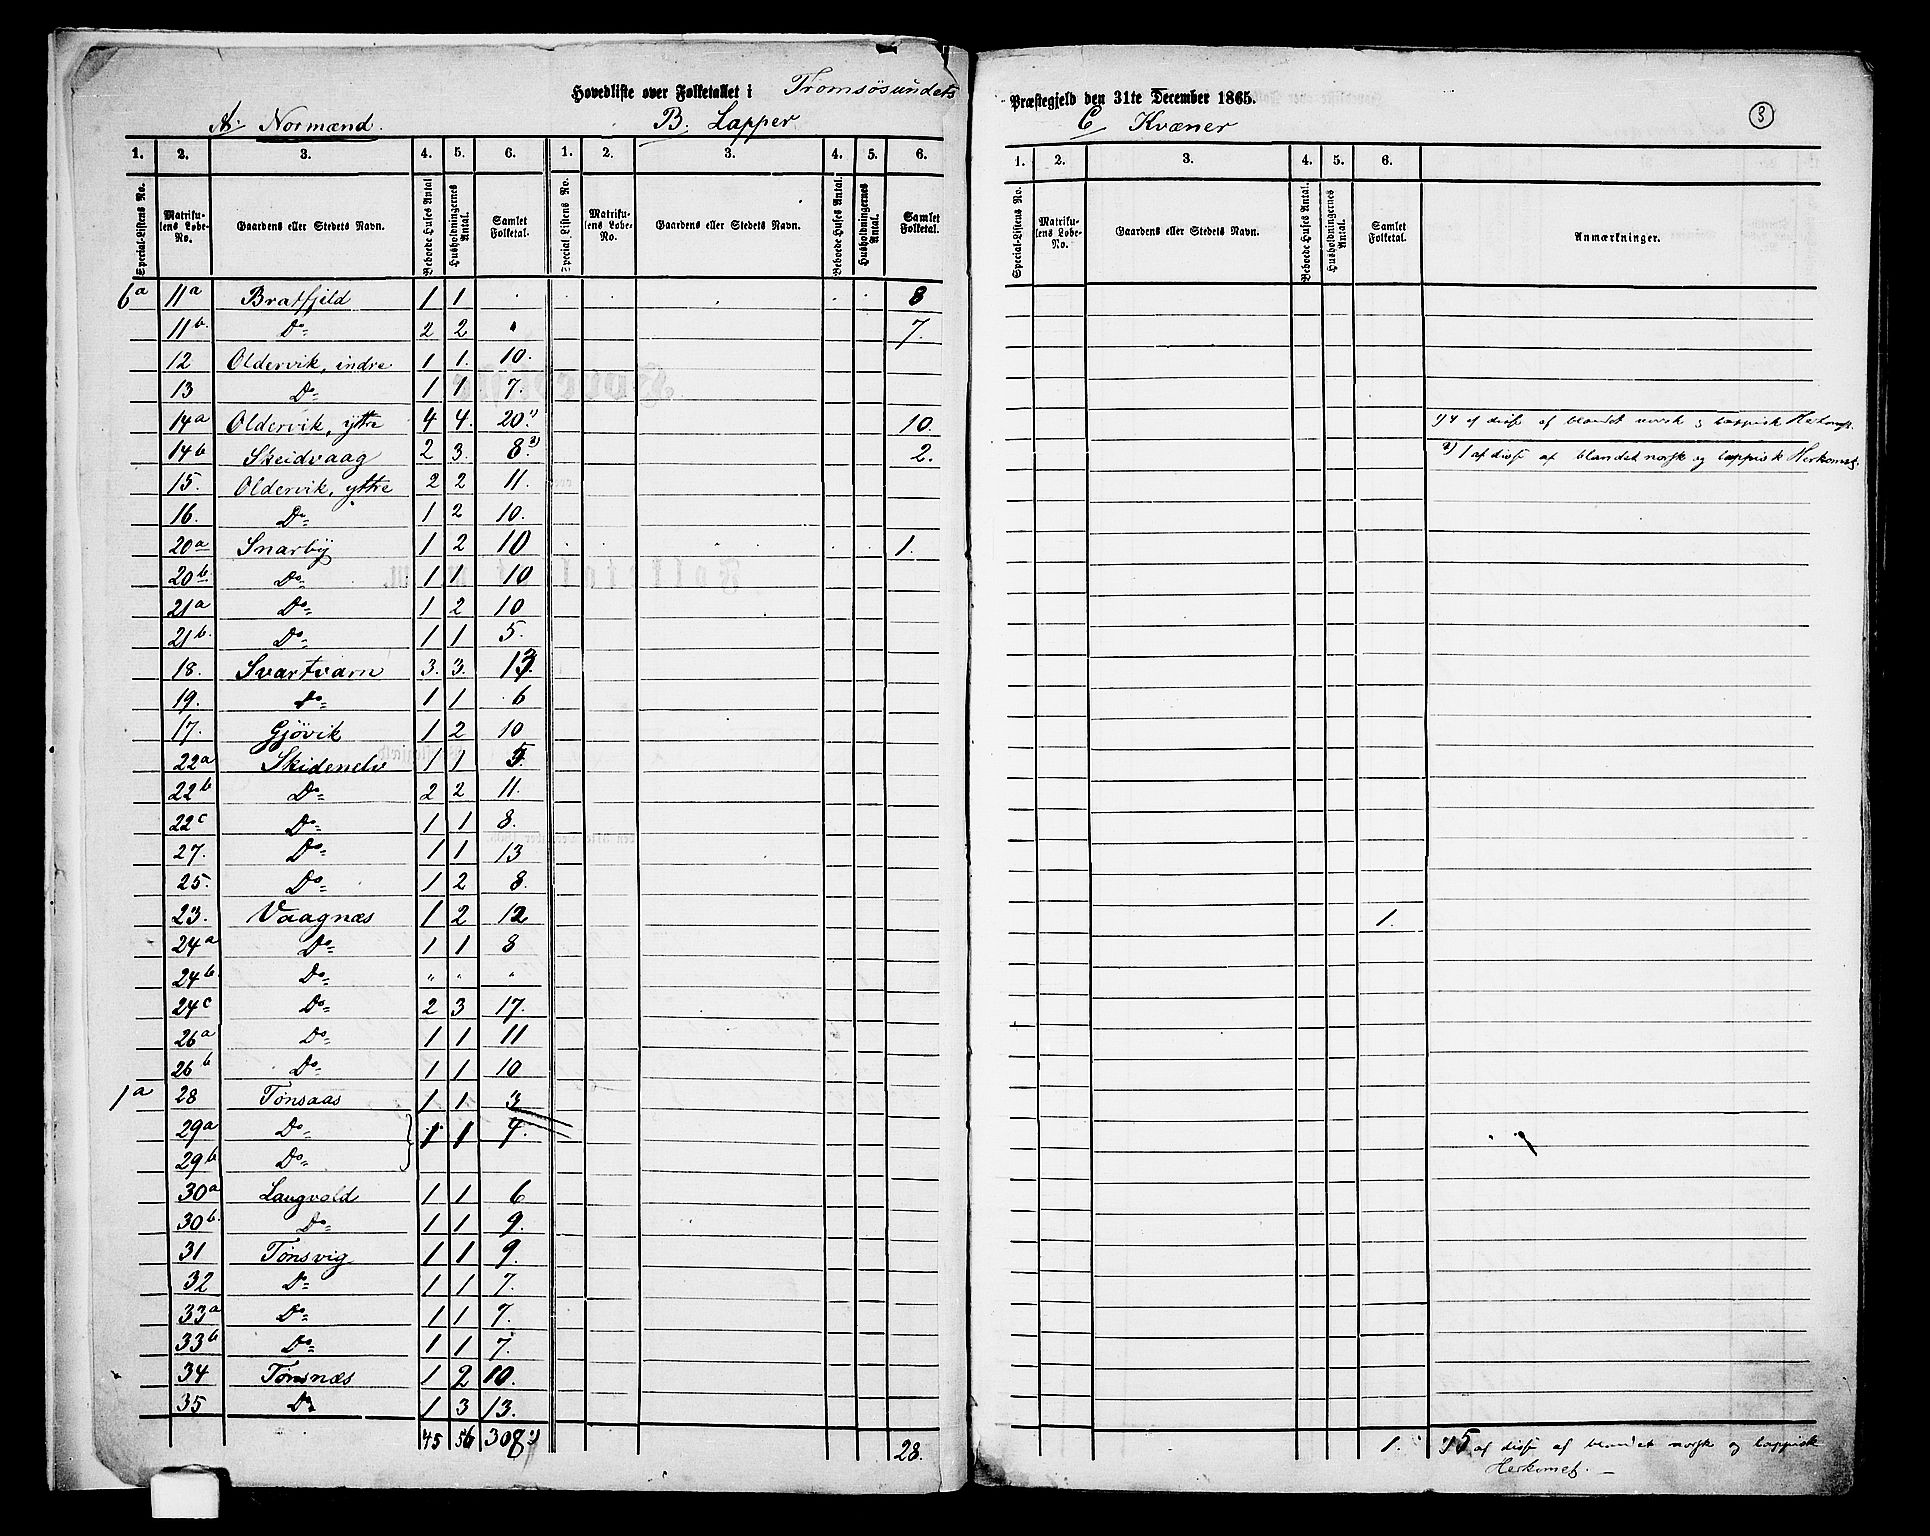 Hovedliste over Folketallet i Tromsösundets Præstegjeld den 31te December 1865.
3
A. Normænd. B. Lapper C Kvæner
1. 2. 3. 4. 5. 6. 1. 2. 3. 4. 5. 6. 1. 2. 3. 4. 5. 6.
Special-Listens No. Matrikulens Løbe-No. Gaardens eller Stedets Navn. Beboede Huses Antal Husholdningernes Antal. Samlet Folketal. Special-Listens No. Matrikulens Løbe-No. Gaardens eller Stedets Navn. Beboede Huses Antal. Husholdningernes Antal. Samlet Folketal. Special-Listens No. Matrikulens Løbe-No. Gaardens eller Stedets Navn. Beboede Huses Antal. Husholdningernes Antal. Samlet Folketal. Anmærkninger.
6a 11a Bratfjeld 1 1 . 8
11b. Do 2 2 " 7.
12 Oldervik, indre 1 1. 10.
13 Do 1 1 7.
14a Oldervik, yttre 4 4. 20.1) 10. 1) 4 af disse af blandet norsk og lappisk Herkomst.
14b Skeidvaag 2 3. 8.2) 2. 2) 1 af disse af blandet norsk og lappisk Herkomst.
15. Oldervik, yttre 2 2 11.
16. Do 1 2 10.
20a Snarby 1 2 10 1.
20b Do 1 1 10
21a Do 1 2 10
21b. Do 1 1 5.
18. Svartvarn 3. 3. 13.
19. Do 1 1 6
17. Gjövik 1 2 10
22a Skidenelv 1 1 5.
22b Do 2 2 11.
22c Do 1 1 8.
27. Do 1 1 13
25. Do 1 2 8.
23. Vaagnæs 1 2 12 1.
24a Do 1 1 8
24b Do " " "
24c Do 2 3 17.
26a Do 1 1 11
26b Do 1 1 10
1a 28 Tønsaas 1 1 3
29a Do 1 1 4.
29b Do
30a Langvold 1 1 6
30b. Do 1 1 9.
31 Tønsvig 1 1 9.
32 Do 1 1 7.
33a Do 1 1 7.
33b Do 1 1 7.
34 Tønsnæs 1 2 10.
35 Do 1 3 13.
45 56 308 1) 28. 1. 1) 5 af disse af blandet norsk og lappisk
Herkomst.